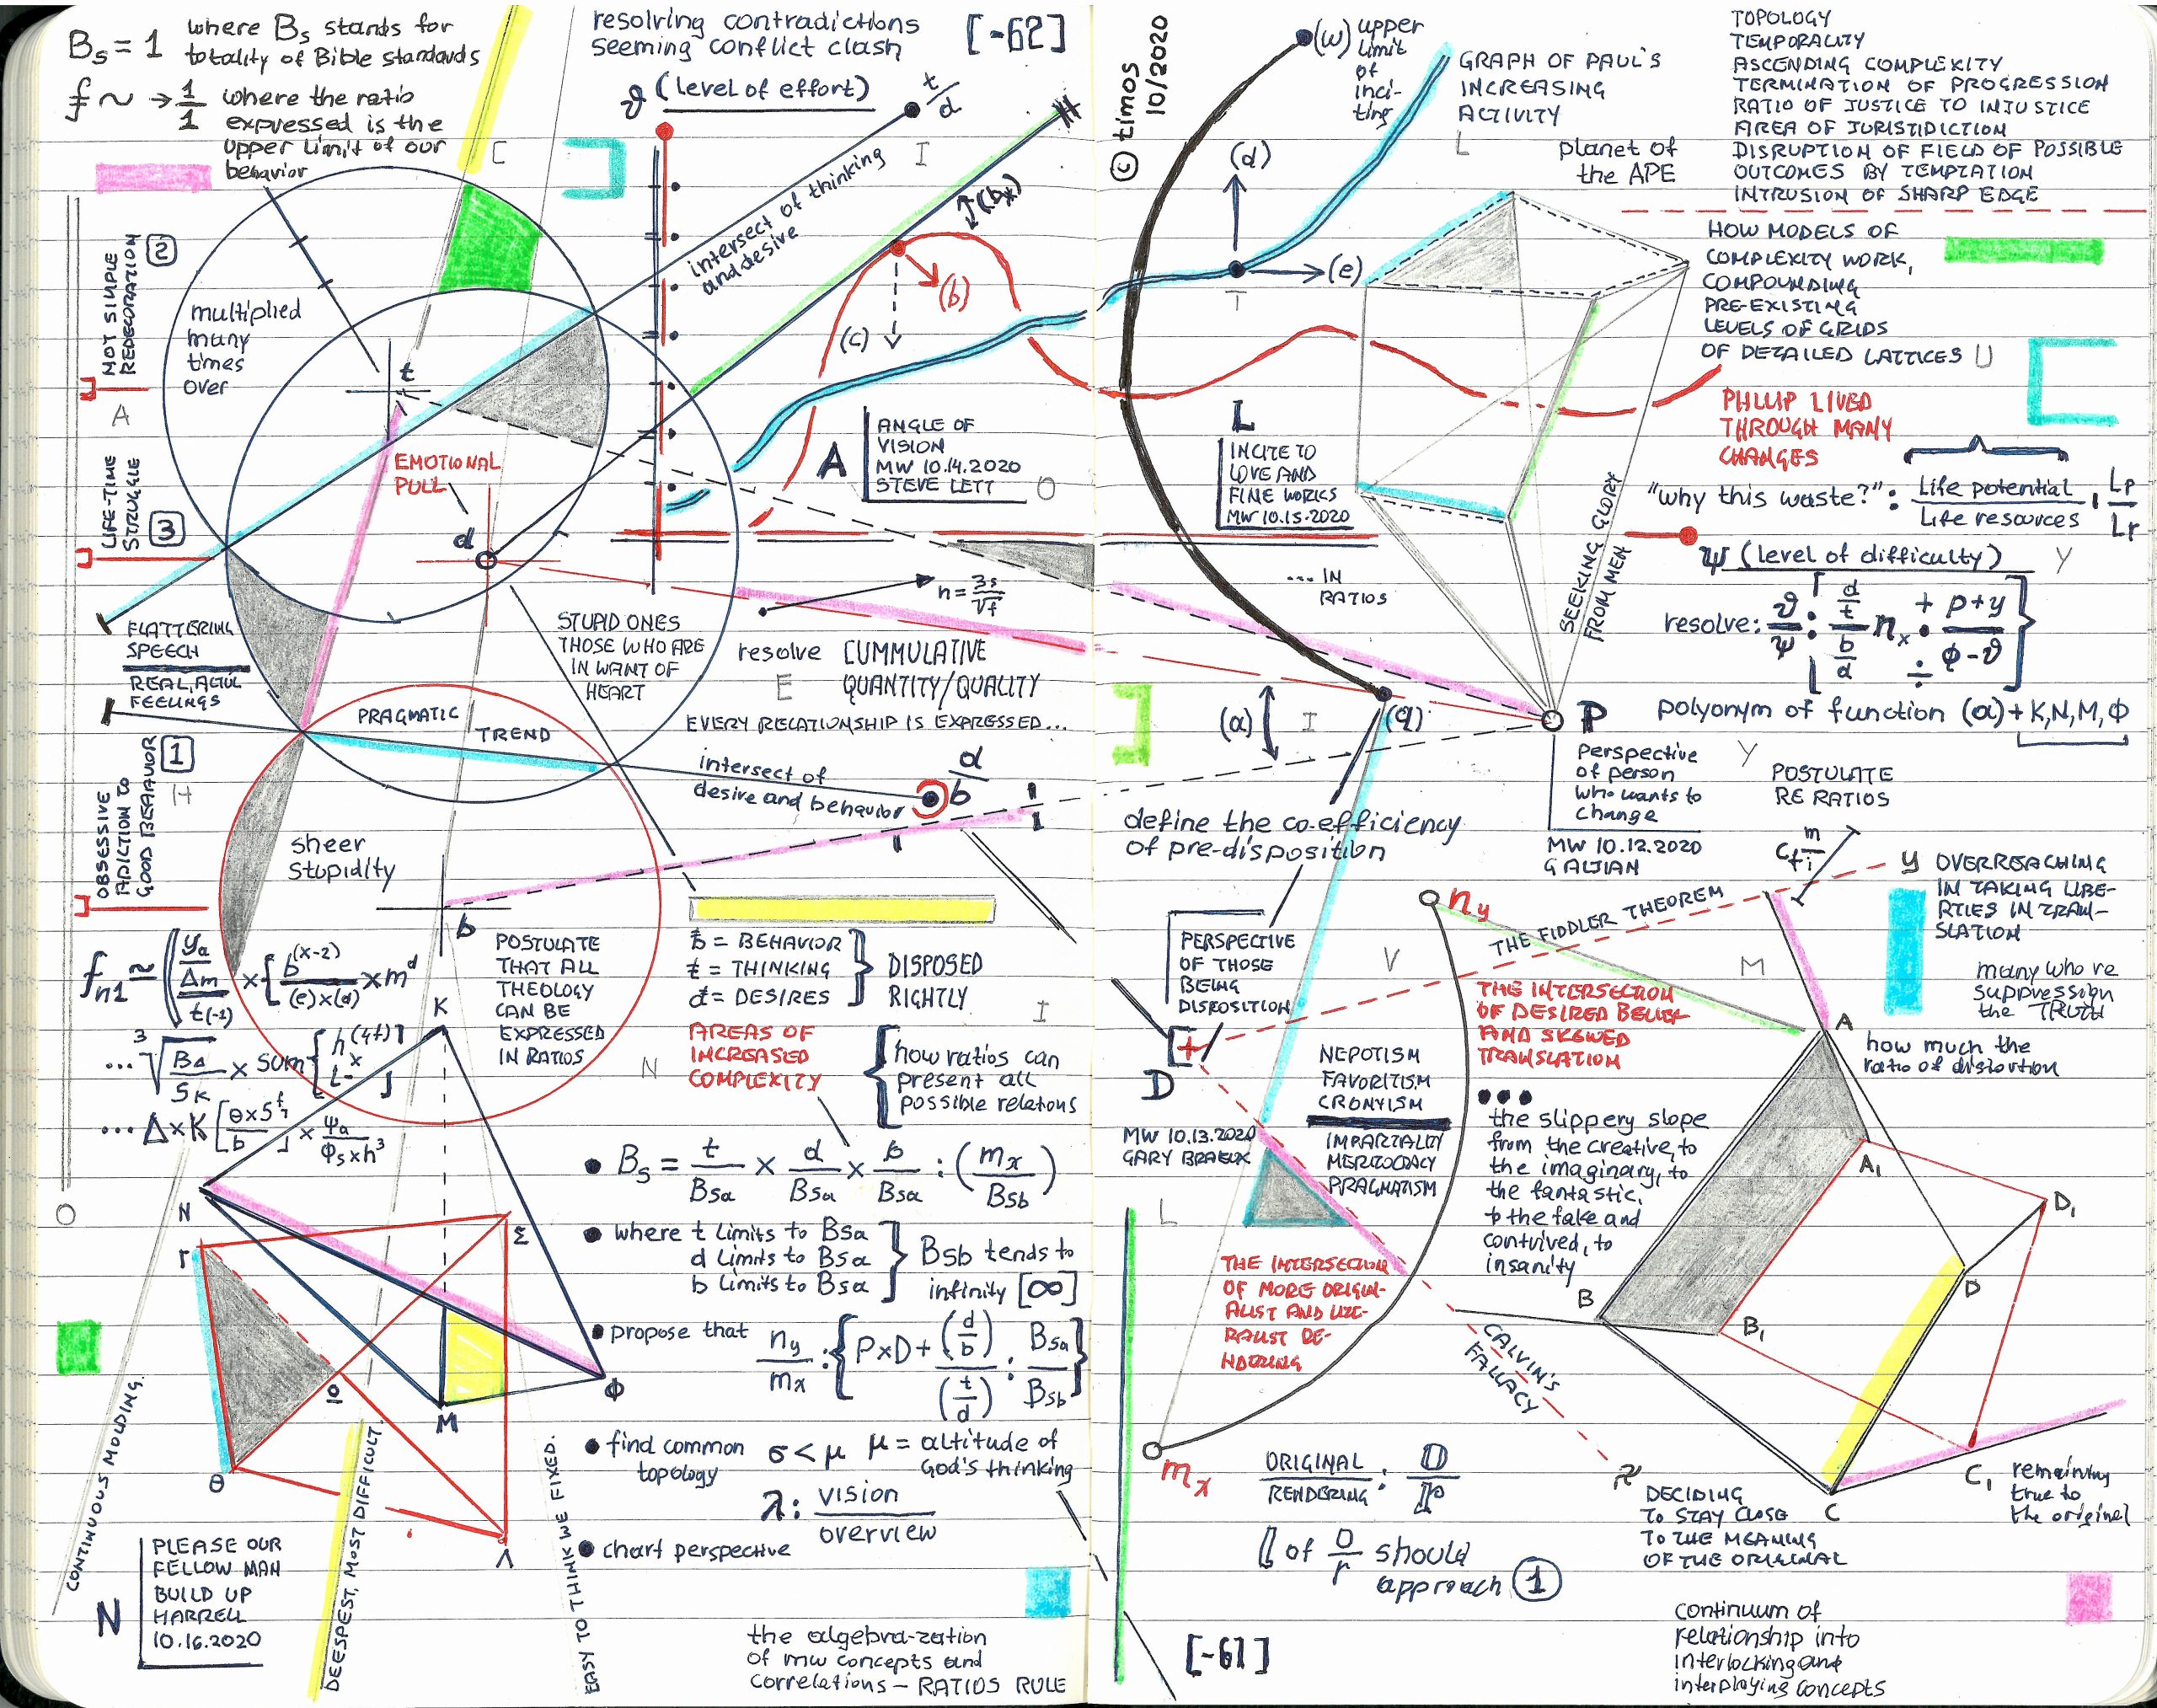 Bs = 1 where Bs stands for
totality of Bible standards
f ~ → 1/1 where the ratio
expressed is the
upper limit of our
behavior
resolving contradictions
seeming conflict clash
[-62]
ϑ (level of effort)
t/d
C
I
intersect of thinking
and desire
(bx)
(b)
(c)
NOT SIMPLE
REDECORATION
2
multiplied
many
times
over
t
A
LIFE-TIME
STRUGGLE
3
EMOTIONAL
PULL
d
A
ANGLE OF
VISION
MW 10.14.2020
STEVE LETT
O
FLATTERING
SPEECH
REAL, ACTUL
FEELINGS
STUPID ONES
THOSE WHO ARE
IN WANT OF
HEART
n = 3s/√f
resolve CUMMULATIVE
QUANTITY/QUALITY
E
EVERY RELATIONSHIP IS EXPRESSED...
PRAGMATIC
TREND
intersect of
desire and behavior
d/b
OBSESSIVE
ADICTION TO
GOOD BEHAVIOR
1
H
sheer
stupidity
b
POSTULATE
THAT ALL
THEOLOGY
CAN BE
EXPRESSED
IN RATIOS
b = BEHAVIOR
t = THINKING
d = DESIRES
DISPOSED
RIGHTLY
I
N
AREAS OF
INCREASED
COMPLEXITY
how ratios can
present all
possible relations
K
N
Γ
Σ
10
M
Φ
Θ
Λ
O
● Bs = t/Bsa × d/Bsa × b/Bsa : (mx/Bsb)
● where t limits to Bsa
d limits to Bsa
b limits to Bsa
Bsb tends to
infinity [∞]
● propose that ny/mx : {P×D + (d/b)/(t/d) : Bsa/Bsb}
● find common
topology
σ < μ μ = altitude of
God's thinking
λ: vision
overview
● chart perspective
CONTINUOUS MOLDING.
DEESPEST, MOST DIFFICULT.
EASY TO THINK WE FIXED.
N
PLEASE OUR
FELLOW MAN
BUILD UP
HARRELL
10.16.2020
the algebra-zation
of mw concepts and
correlations – RATIOS RULE
© timos
10/2020
(w) upper
limit
of
inci-
ting
GRAPH OF PAUL'S
INCREASING
ACTIVITY
L
(d)
(e)
T
planet of
the APE
TOPOLOGY
TEMPORALITY
ASCENDING COMPLEXITY
TERMINATION OF PROGRESSION
RATIO OF JUSTICE TO INJUSTICE
AREA OF JURISTIDICTION
DISRUPTION OF FIELD OF POSSIBLE
OUTCOMES BY TEMPTATION
INTRUSION OF SHARP EDGE
HOW MODELS OF
COMPLEXITY WORK,
COMPOUNDING
PRE-EXISTING
LEVELS OF GRIDS
OF DETAILED LATTICES
U
PHILLIP LIVED
THROUGH MANY
CHANGES
L
INCITE TO
LOVE AND
FINE WORKS
MW 10.15.2020
"why this waste?": Life potential/Life resources, Lp/Lr
SEEKING GLORY
FROM MEN
Ψ (level of difficulty)
Y
... IN
RATIOS
resolve: ϑ/Ψ : [d/t / b/d nx + ÷ p+y/ϕ-ϑ}
(a)
I
(q)
P
polyonym of function (a) + K,N,M,Φ
Perspective
of person
who wants to
change
MW 10.12.2020
GALJIAN
Y
POSTULATE
RE RATIOS
define the co-efficiency
of pre-disposition
PERSPECTIVE
OF THOSE
BEING
DISPOSITION
D
MW 10.13.2020
GARY BREAUX
ny
THE FIDDLER THEOREM
V
M
y
OVERREACHING
IN TAKING LIBE-
RTIES IN TRAN-
SLATION
THE INTERSECTION
OF DESIRED BELIEF
AND SKEWED
TRANSLATION
many who re
suppression
the TRUTH
A
how much the
ratio of distortion
NEPOTISM
FAVORITISM
CRONYISM
IMPARTIALITY
MERITOCRACY
PRAGMATISM
●●●
the slippery slope
from the creative, to
the imaginary, to
the fantastic,
to the fake and
contrived, to
insanity
A1
D1
D
B
B1
C
C1
L
THE INTERSECTION
OF MORE ORIGIN-
ALIST AND LITE-
RALIST RE-
NDERING
CALVIN'S
FALLACY
mx
ORIGINAL/RENDERING : O/r
[ of O/r should
approach 1
DECIDING
TO STAY CLOSE
TO THE MEANING
OF THE ORIGINAL
remaining
true to
the original
[-61]
continuum of
relationship into
interlocking and
interplaying concepts